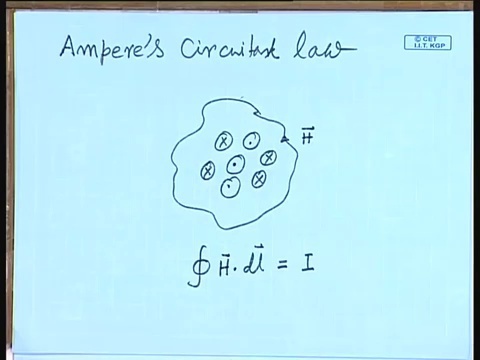 Ampere's Circuital law
© CET
I.I.T. KGP
H⃗
∮ H⃗ · dl⃗ = I